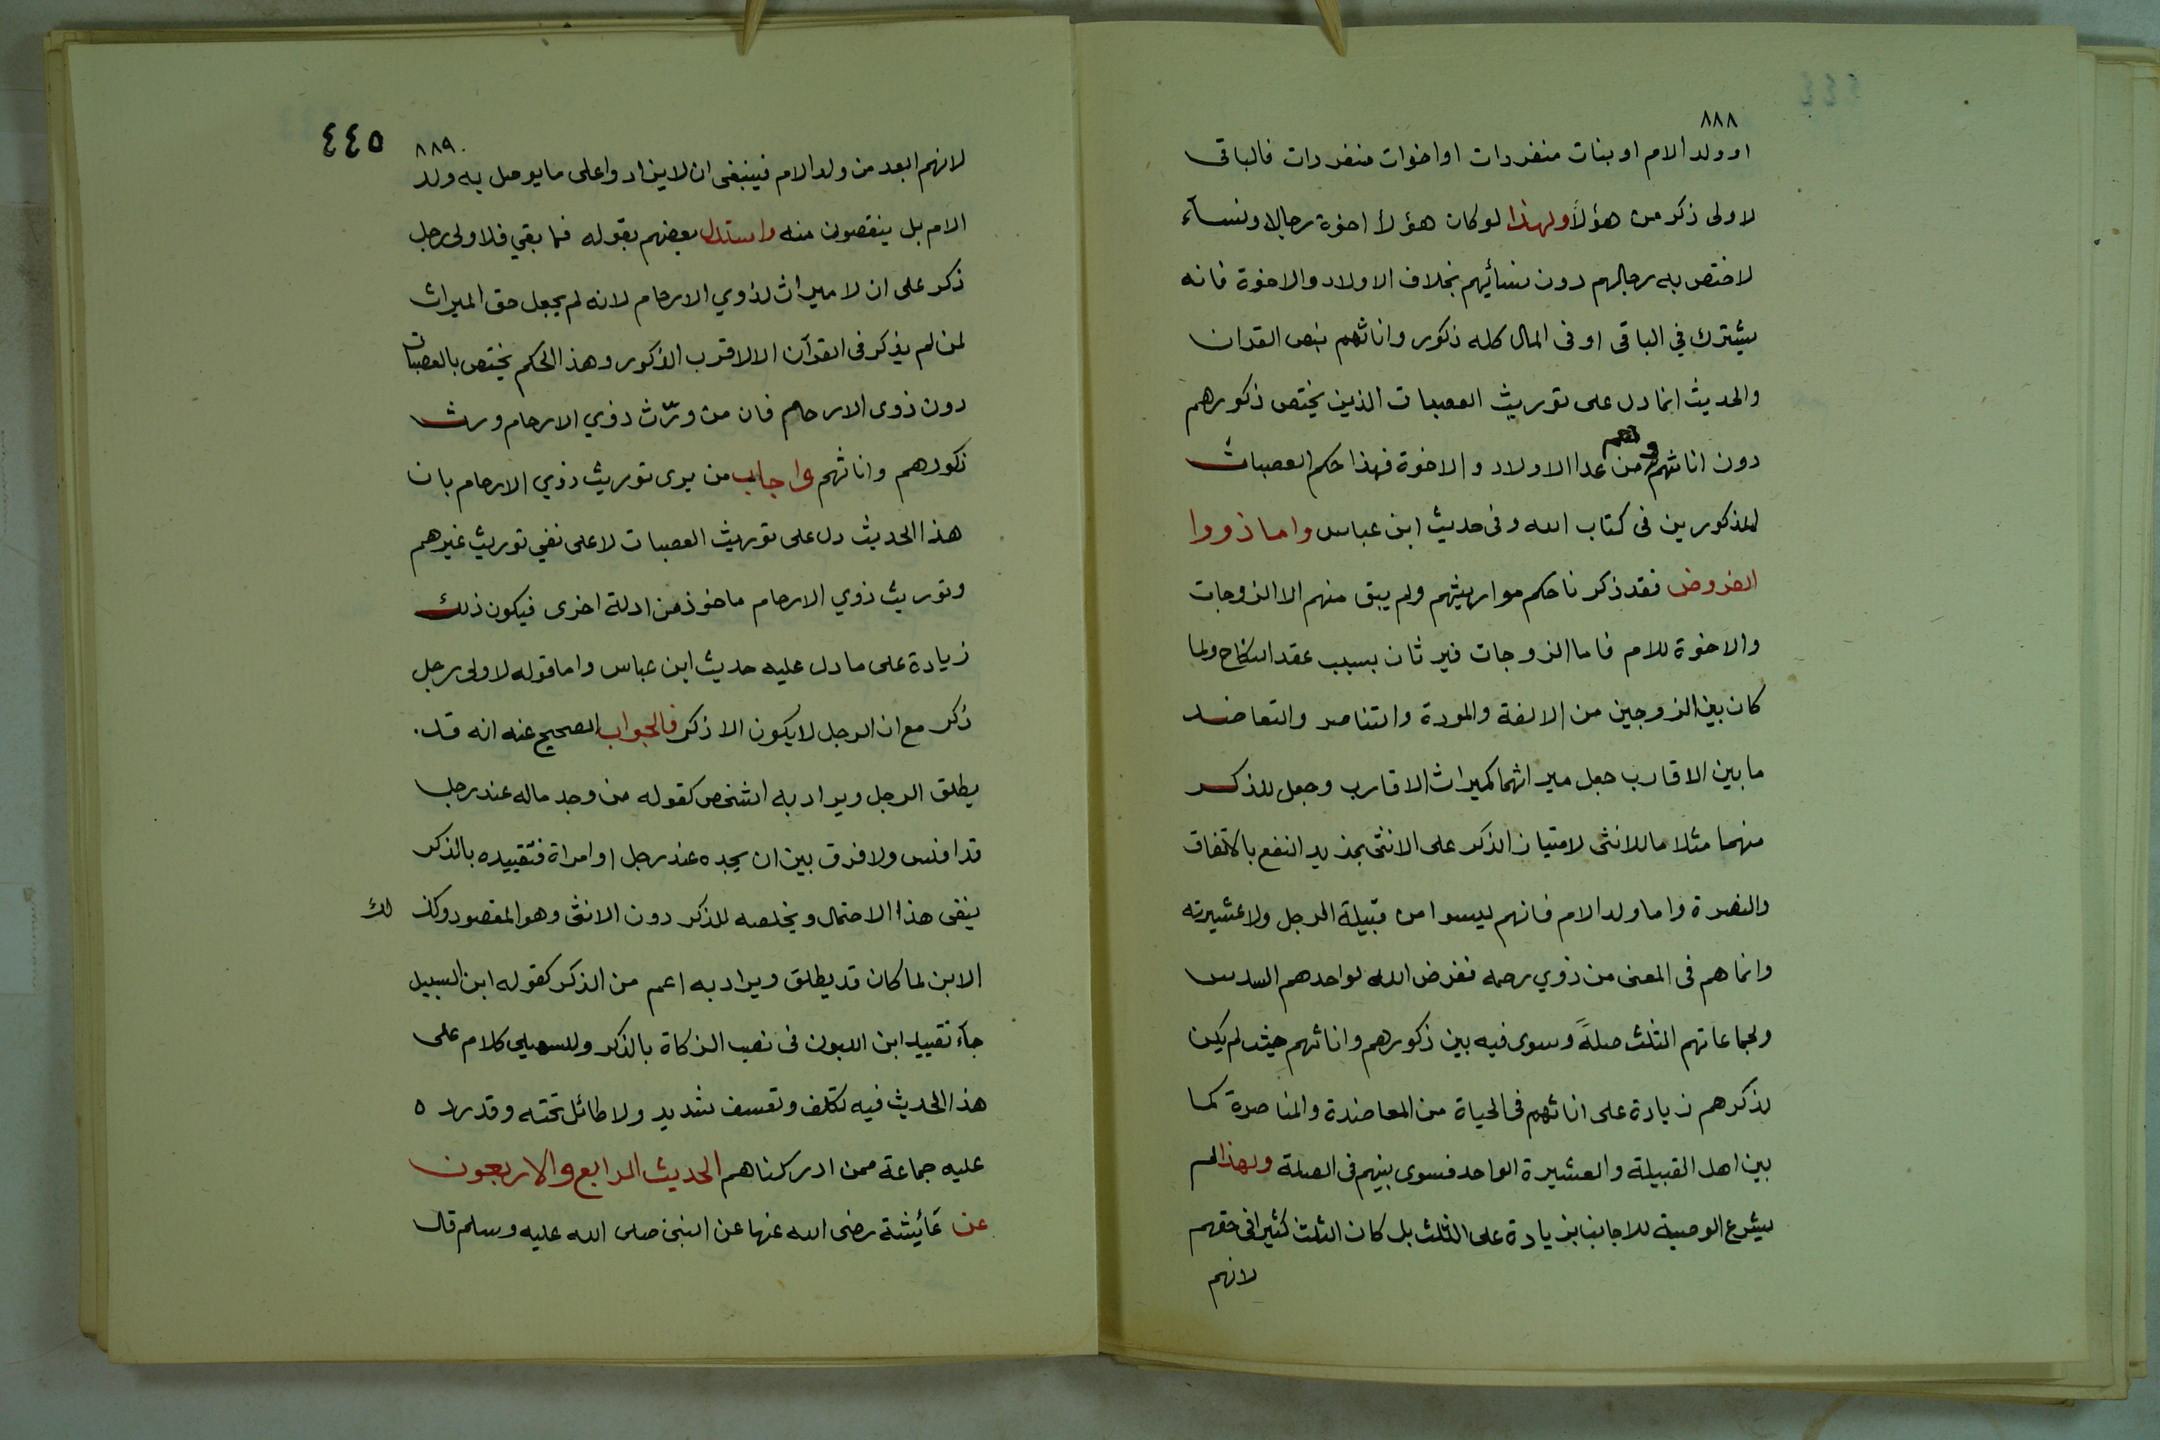 ٨٨٨
او ولد الام او بنات منفردات او اخوات منفردات فالباقى
لاولى ذكر من هؤلاَ ولهذا لو كان هؤلاَ اخوة رجالا ونسآء
لاختص به رجالهم دون نسائيهم بخلاف الاولاد والاخوة فانه
يشترك في الباقى او فى المال كله ذكور واناثهم بنص القران
والحديث انما دل على توريث العصبات الذين يختص ذكورهم
دون اناثهم وهم من عدا الاولاد والاخوة فهذا حكم العصبات
المذكورين فى كتاب الله وفى حديث ابن عباس واما ذووا
الفروض فقد ذكرنا حكم مواريثهم ولم يبق منهم الا الزوجات
والاخوة للام فاما الزوجات فيرثان بسبب عقد النكاح ولما
كان بين الزوجين من الالفة والمودة والتناصر والتعاضد
ما بين الاقارب جعل ميراثهما كميراث الاقارب وجعل للذكر
منهما مثلا ما للانثى لامتياز الذكر على الانثى بمزيد النفع بالانفاق
والنصرة واما ولد الام فانهم ليسوا من قبيلة الرجل ولا عشيرته
وانما هم فى المعنى من ذوي رحمه ففرض الله لواحدهم السدس
ولجماعاتهم الثلث صلةً وسوى فيه بين ذكورهم واناثهم حيث لم يكن
لذكرهم زيادة على اناثهم فى الحياة من المعاضدة والمناصرة كما
بين اهل القبيلة والعشيرة الواحد فسوى بينهم فى الصلة ولهذا لم
يشرع الوصية للاجانب بزيادة على الثلث بل كان الثلث كثيرا فى حقهم
لانهم
٤٤٥
٨٨٩
لانهم ابعد من ولد الام فينبغى ان لا يزادوا على ما يوصل به ولد
الام بل ينقصون منه واستدل بعضهم بقوله فما بقي فلاولى رجل
ذكر على ان لا ميراث لذوي الارحام لانه لم يجعل حق الميراث
لمن لم يذكر فى القرآن الا لاقرب الذكور وهذا الحكم يختص بالعصبات
دون ذوى الارحام فان من ورّث ذوي الارحام ورث
ذكورهم واناثهم واجاب من يرى توريث ذوي الارحام بان
هذا الحديث دل على توريث العصبات لا على نفي توريث غيرهم
وتوريث ذوي الارحام ماخوذ من ادلة اخرى فيكون ذلك
زيادة على ما دل عليه حديث ابن عباس واما قوله لاولى رجل
ذكر مع ان الرجل لا يكون الا ذكر فالجواب الصحيح عنه انه قد
يطلق الرجل ويراد به الشخص كقوله من وجد ماله عند رجل
قد افلس ولا فرق بين ان يجده عند رجل او امراة فتقييده بالذكر
ينفى هذا الاحتمال ويخلصه للذكر دون الانثى وهو المقصود وكذ لك
الابن لما كان قد يطلق ويراد به اعم من الذكر كقوله ابن السبيل
جآء تقييد ابن اللبون فى نصب الزكاة بالذكر وللسهيلي كلام على
هذا الحديث فيه تكلف وتعسف شديد ولا طائل تحته وقد رده
عليه جماعة ممن ادركناهم الحديث الرابع والاربعون
عن عَائيشة رضى الله عنها عن النبى صلى الله عليه وسلم قال